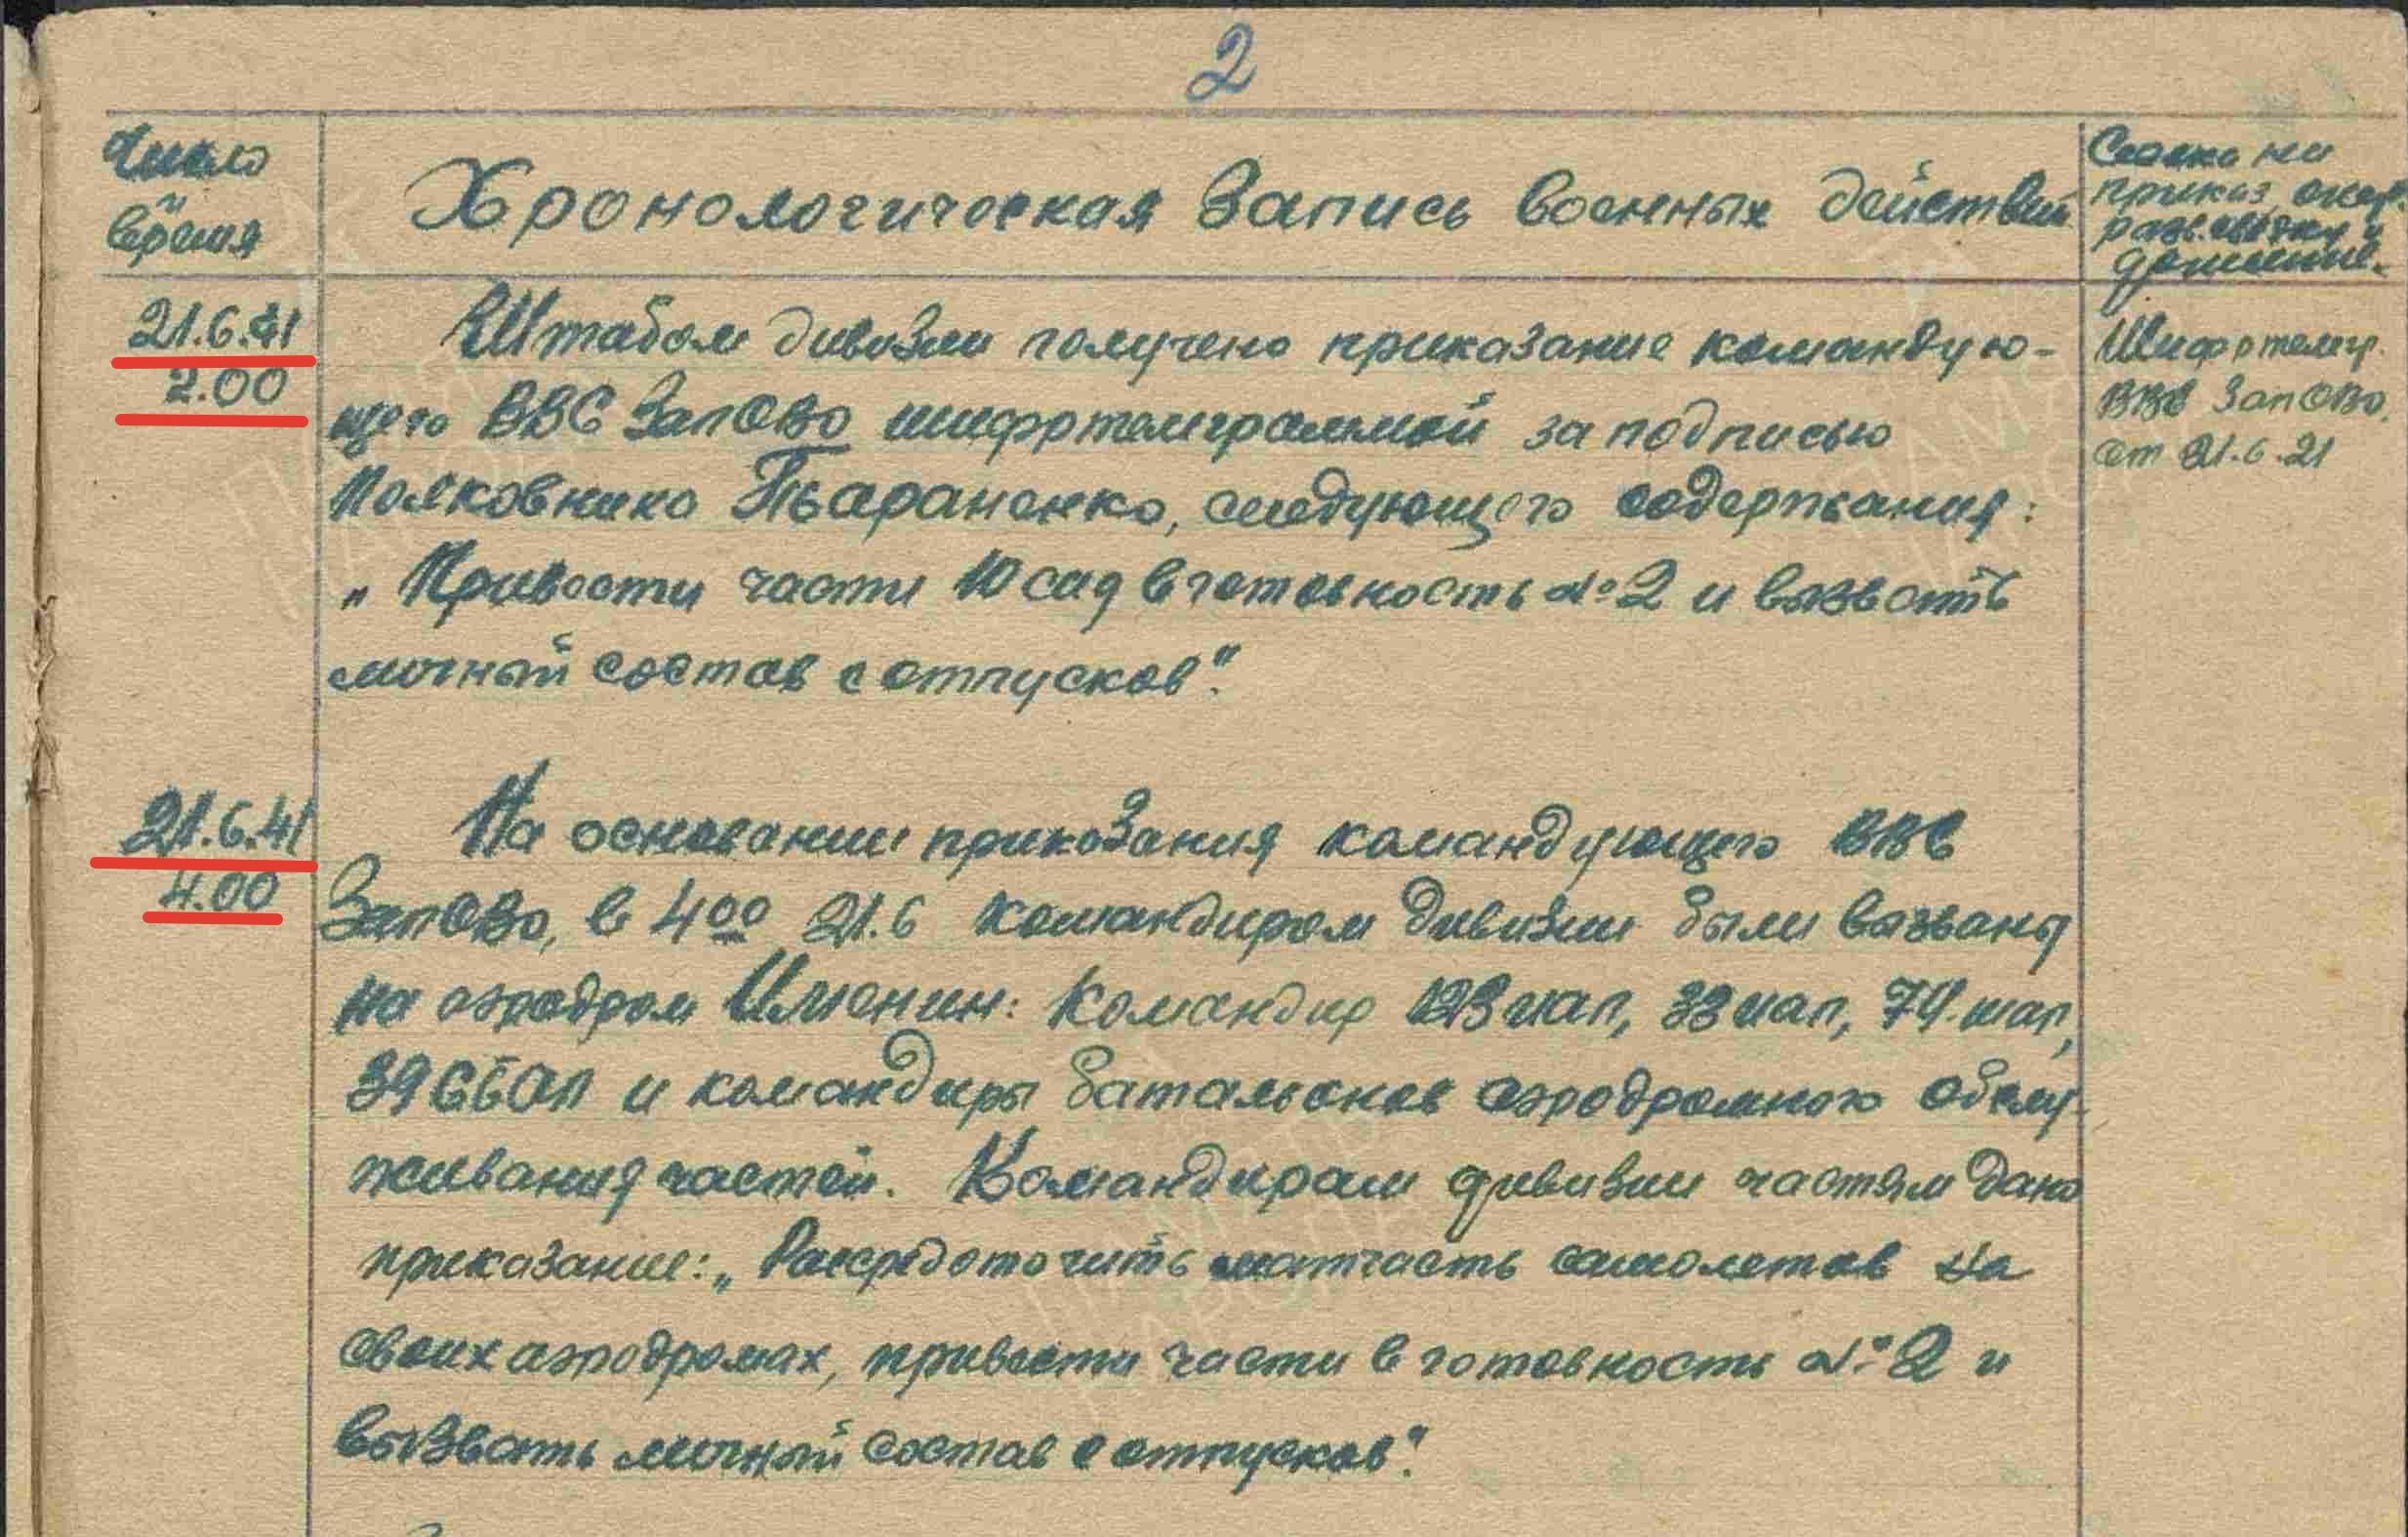 2
Число
и
время
Хронологическая запись военных действий
Ссылка на
приказ, опер
разв. сводку и
донесение.
21.6.41
2.00
Штабом дивизии получено приказание командую-
щего ВВС ЗапОВО шифртелеграммой за подписью
Полковника Тараненко, следующего содержания:
„Привести части 10 сад в готовность №2 и вызвать
личный состав с отпусков".
Шифртелегр.
ВВС ЗапОВО.
от 21.6.21
21.6.41
4.00
На основании приказания командующего ВВС
ЗапОВО, в 4 00 21.6 командиром дивизии были вызваны
на аэродром Именин: командир 123 иап, 33 иап, 74 шап,
39 ССБАП и командиры батальонов аэродромного обслу-
живания частей. Командирам дивизии частям дано
приказание: „Рассредоточить матчасть самолетов на
своих аэродромах, привести части в готовность №2 и
вызвать личный состав с отпусков".
ПАМЯТЬ
НАРОДА